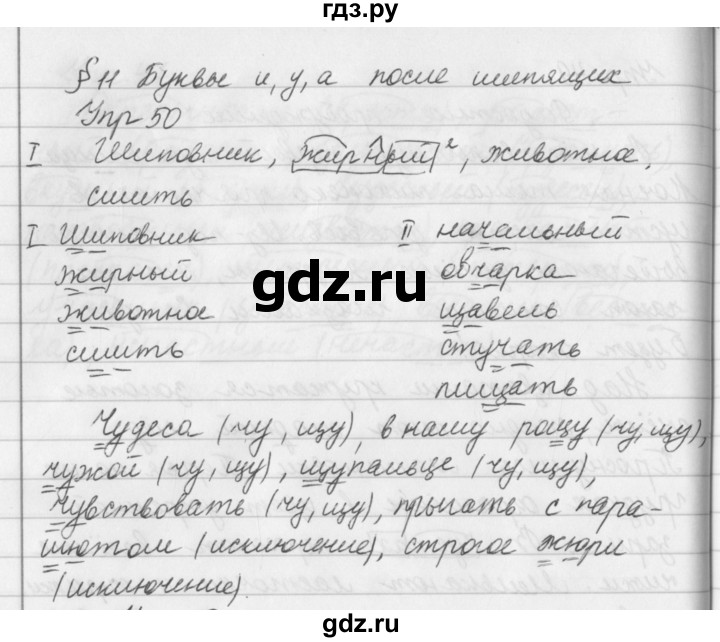 гдз.ру
§ 11 Буквы и, у, а после шипящих
Упр 50
I Шиповник, жирный², животное,
сшить
I Шиповник II начальный
жирный овчарка
животное щавель
сшить стучать
пищать
gdz.ru
Чудеса (чу, щу), в нашу рощу (чу, щу),
чужой (чу, щу), щупальце (чу, щу),
чувствовать (чу, щу), прыгать с пара-
шютом (исключение), строгое жюри
(исключение).
гдз.ру